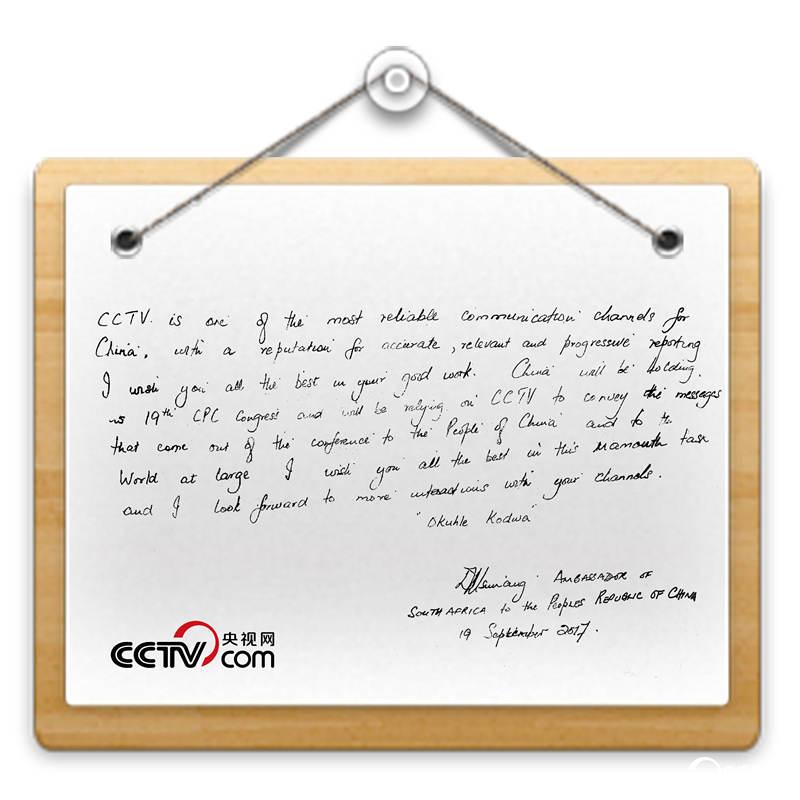 CCTV. is one of the most reliable communication channels for
China, with a reputation for accurate, relevant and progressive reporting
I wish you all the best in your good work. China will be holding
its 19th CPC Congress and will be relying on CCTV to convey the messages
that come out of the conference to the People of China and to the
World at large I wish you all the best in this mamouth task
and I look forward to more interactions with your channels.
"Okuhle Kodwa"
AMBASSADOR OF
SOUTH AFRICA to the PEOPLES REPUBLIC OF CHINA
19 September 2017.
CCTV.com 央视网